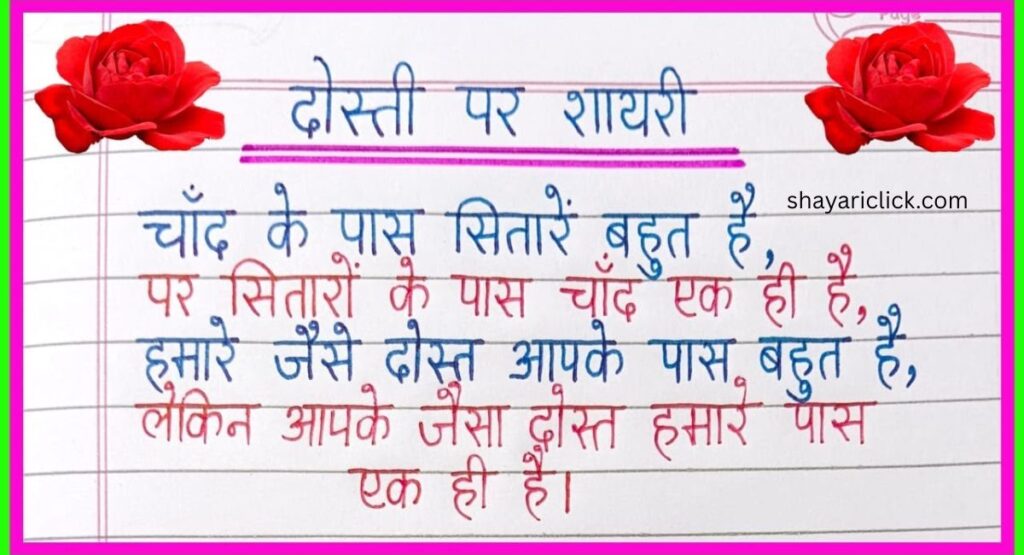 Page
दोस्ती पर शायरी
shayariclick.com
चाँद के पास सितारें बहुत है,
पर सितारों के पास चाँद एक ही है,
हमारे जैसे दोस्त आपके पास बहुत है,
लेकिन आपके जैसा दोस्त हमारे पास
एक ही है।